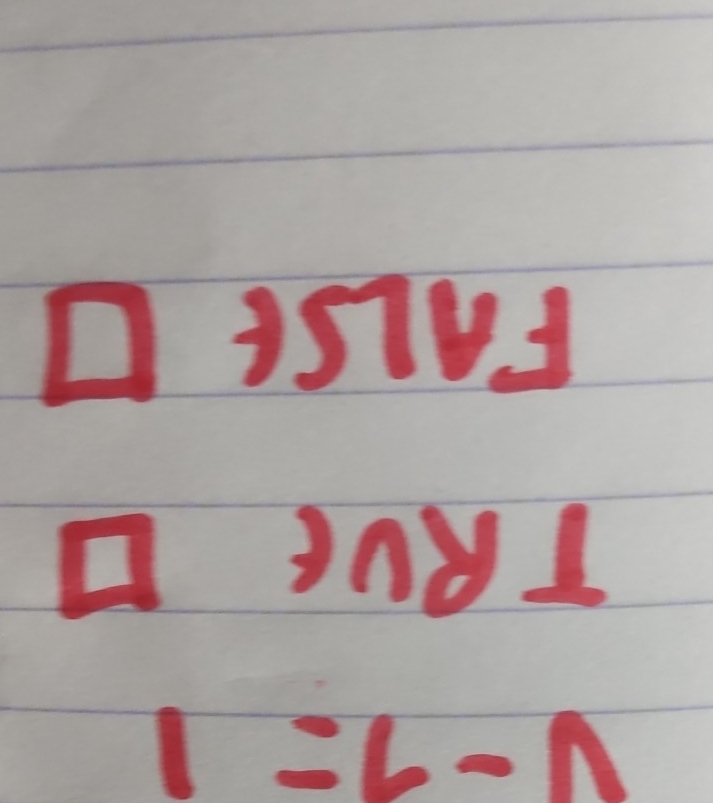 √-1=1
TRUE □
FALSE □